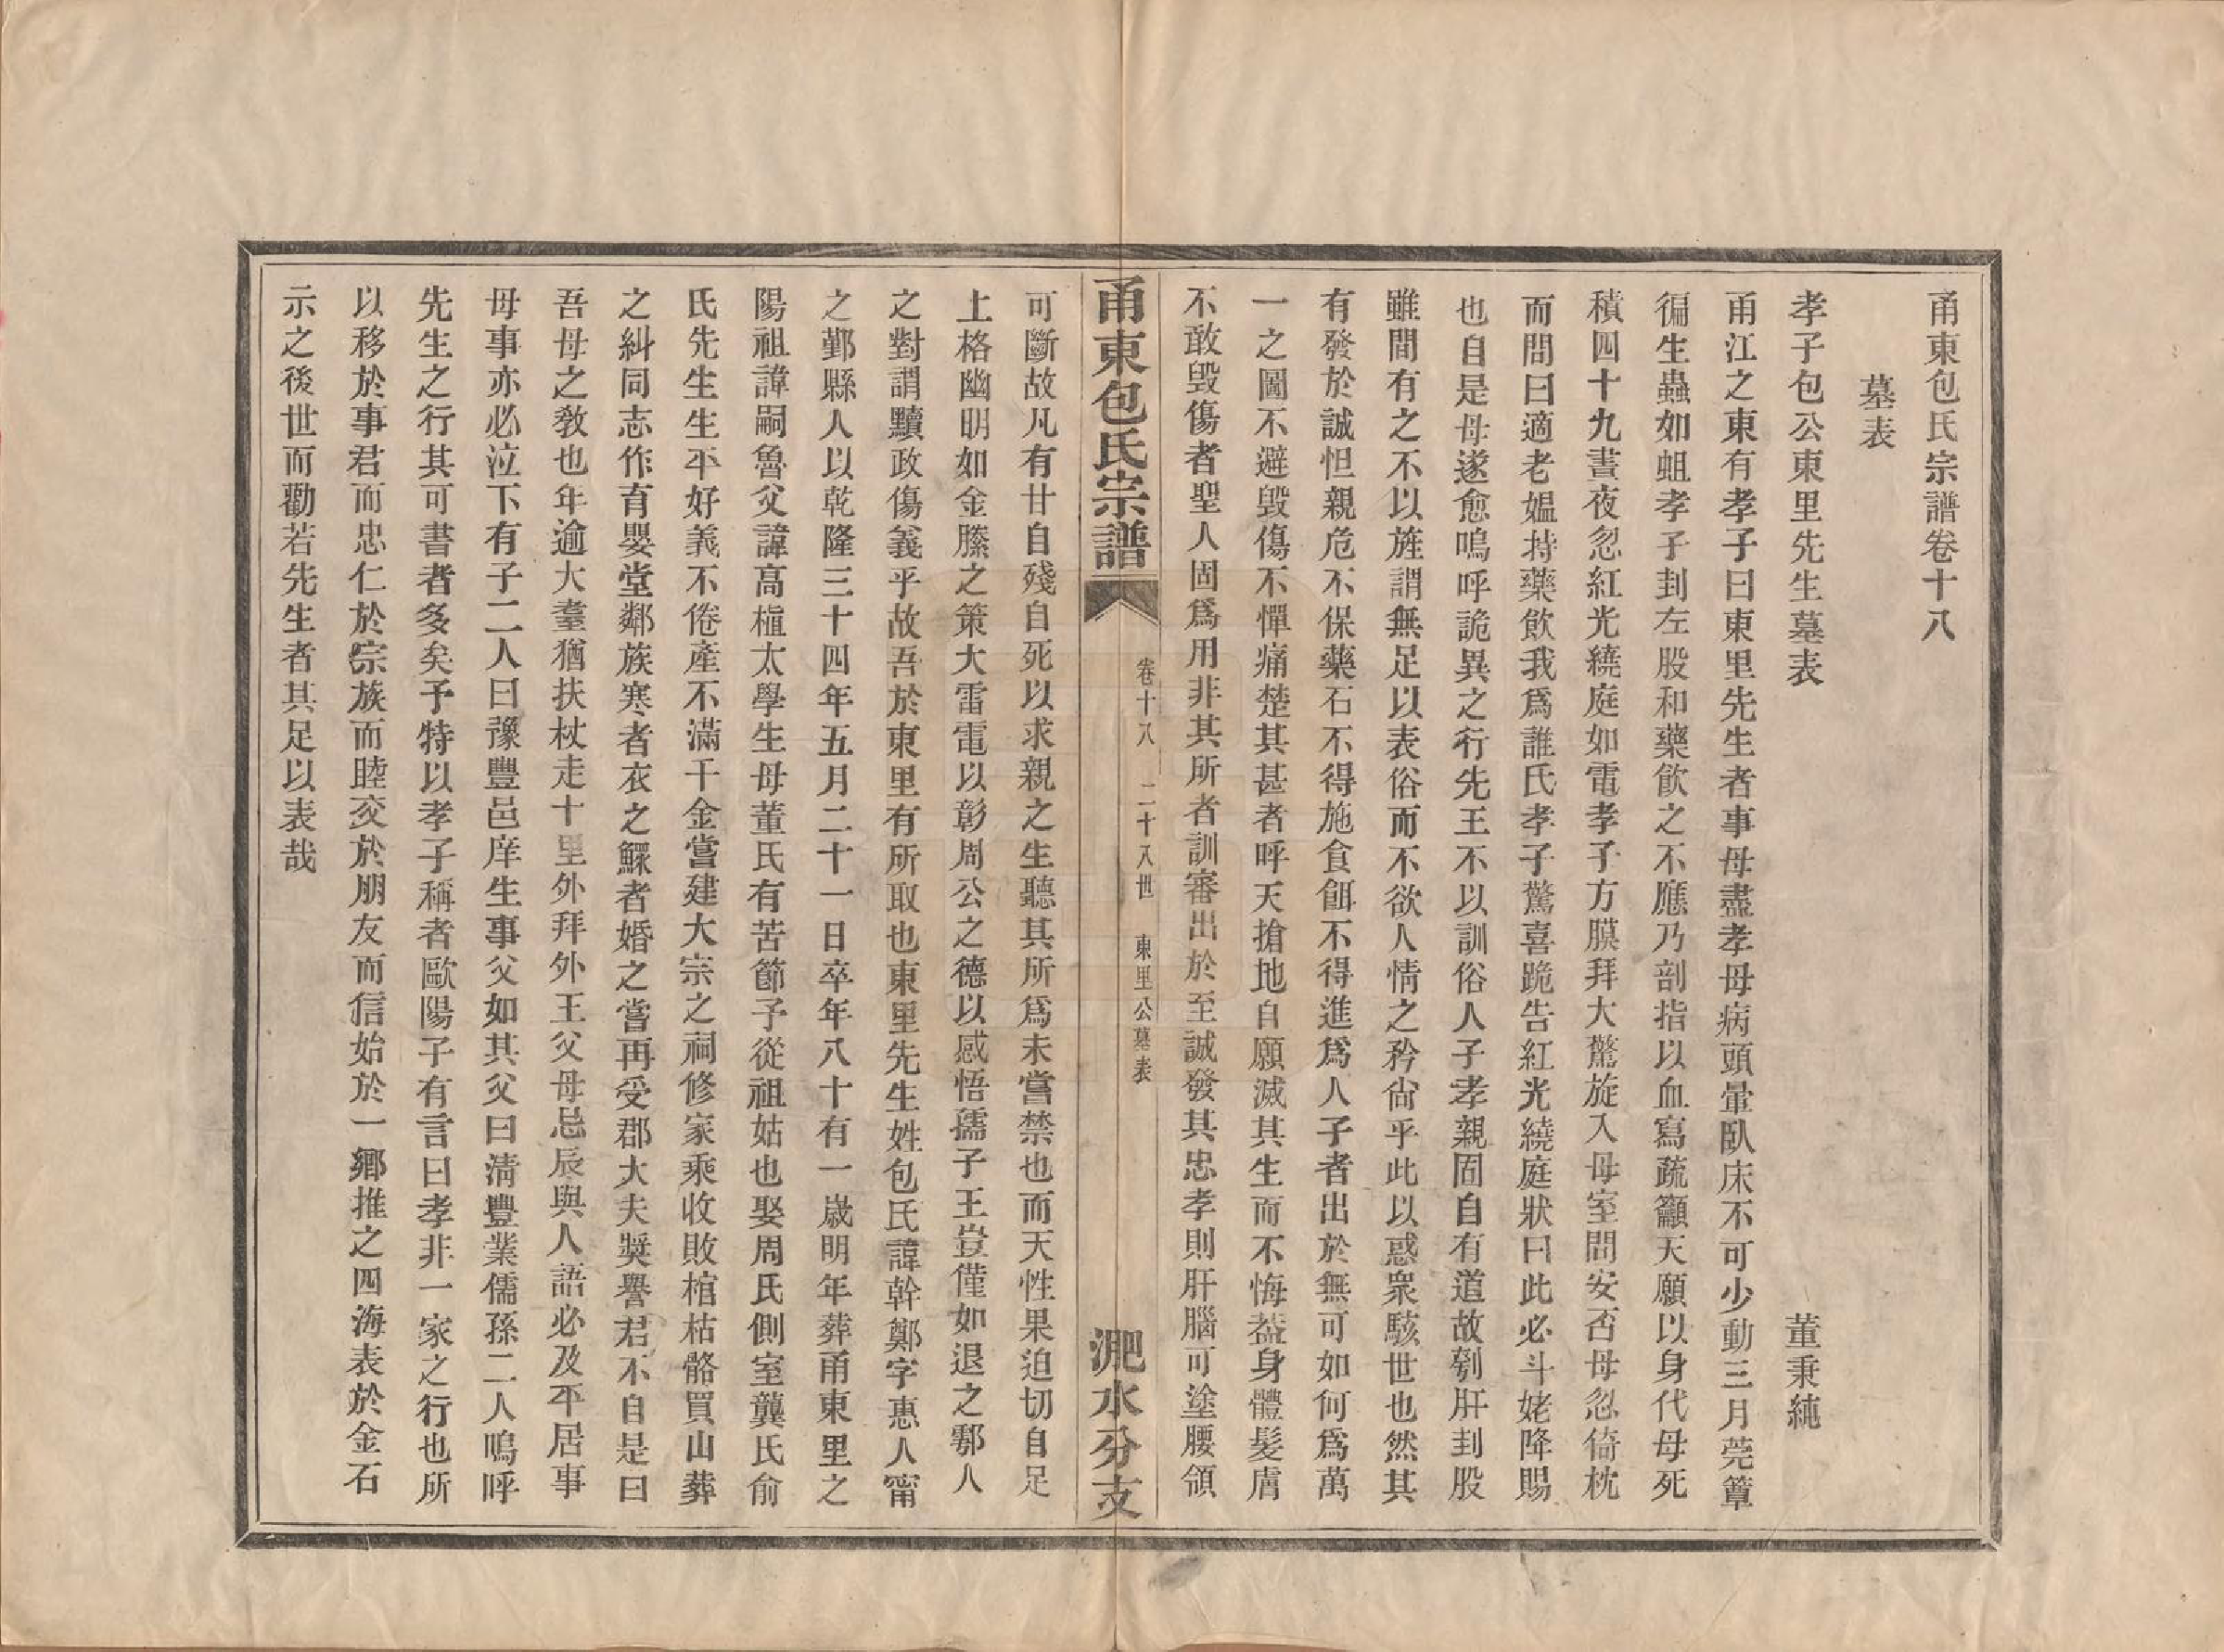 甬東包氏宗譜卷十八
墓表
孝子包公東里先生墓表
董秉純
甬江之東有孝子曰東里先生者事母盡孝母病頭暈臥床不可少動三月莞簟
徧生蟲如蛆孝子刲左股和藥飲之不應乃剖指以血寫疏籲天願以身代母死
積四十九晝夜忽紅光繞庭如電孝子方膜拜大驚旋入母室問安否母忽倚枕
而問曰適老媼持藥飲我爲誰氏孝子驚喜跪告紅光繞庭狀曰此必斗姥降賜
也自是母遂愈嗚呼詭異之行先王不以訓俗人子孝親固自有道故刳肝刲股
雖間有之不以旌謂無足以表俗而不欲人情之矜尙乎此以惑衆駭世也然其
有發於誠怛親危不保藥石不得施食餌不得進爲人子者出於無可如何爲萬
一之圖不避毀傷不憚痛楚其甚者呼天搶地自願滅其生而不悔葢身體髮膚
不敢毀傷者聖人固爲用非其所者訓審出於至誠發其忠孝則肝腦可塗腰領
甬東包氏宗譜
卷十八
二十八世
東里公墓表
淝水分支
可斷故凡有甘自殘自死以求親之生聽其所爲未嘗禁也而天性果迫切自足
上格幽明如金縢之策大雷電以彰周公之德以感悟孺子王豈僅如退之鄠人
之對謂黷政傷義乎故吾於東里有所取也東里先生姓包氏諱幹鄭字惠人甯
之鄞縣人以乾隆三十四年五月二十一日卒年八十有一歲明年葬甬東里之
陽祖諱嗣魯父諱高榳太學生母董氏有苦節予從祖姑也娶周氏側室龔氏俞
氏先生生平好義不倦產不滿千金嘗建大宗之祠修家乘收敗棺枯骼買山葬
之糾同志作育嬰堂鄰族寒者衣之鰥者婚之嘗再受郡大夫獎譽君不自是曰
吾母之敎也年逾大耋猶扶杖走十里外拜外王父母忌辰與人語必及平居事
母事亦必泣下有子二人曰豫豐邑庠生事父如其父曰淸豐業儒孫二人嗚呼
先生之行其可書者多矣予特以孝子稱者歐陽子有言曰孝非一家之行也所
以移於事君而忠仁於宗族而睦交於朋友而信始於一鄉推之四海表於金石
示之後世而勸若先生者其足以表哉